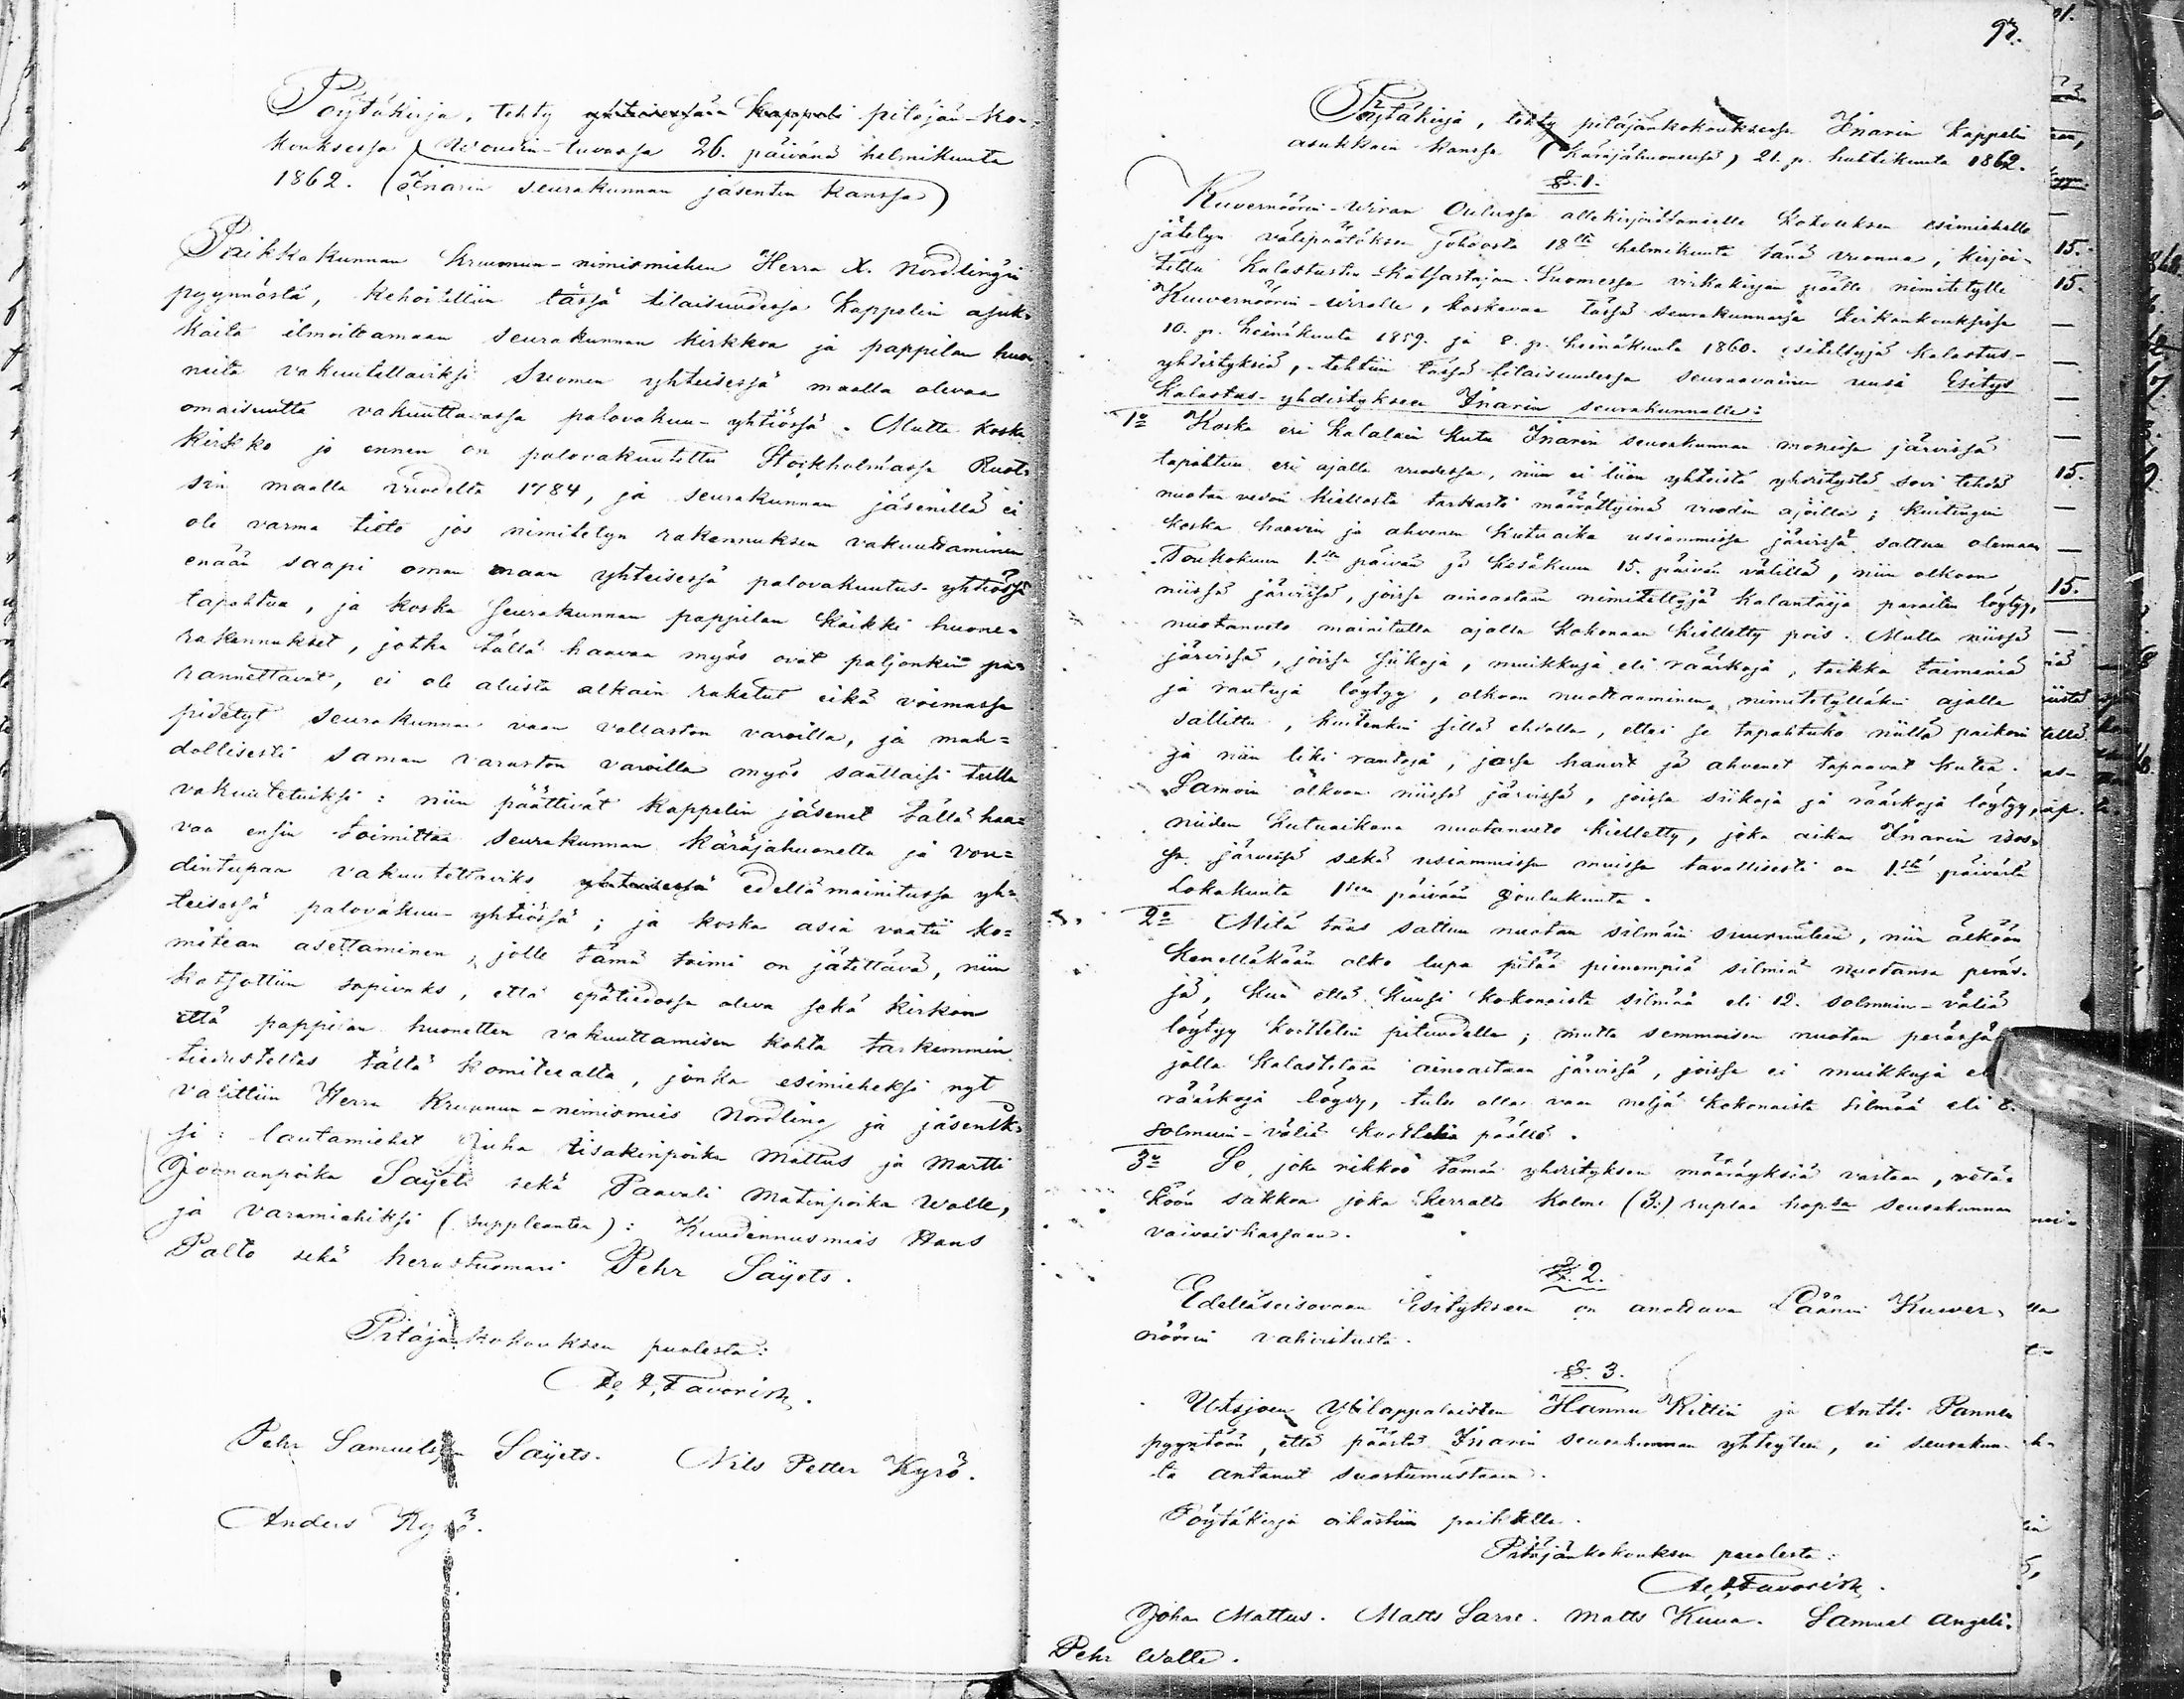 Pöytäkirja, tehty yhteisessä Kappeli pitäjän-ko-
kouksessa Woudin-tuvassa 26. päivänä helmikuuta
1862. (Inarin seurakunnan jäsenten kanssa)
Paikkakunnan kruunun-nimismiehen Herra N. Nordling'in
pyynnöstä, kehoitettiin tässä tilaisuudessa kappelin asuk-
kaita ilmoittamaan seurakunnan kirkkoa ja pappilan huo-
neita vakuutettaviksi Suomen yhteisessä maalla olevaa
omaisuutta vakuuttavassa palovakuu-yhtiössä. Mutta koska
kirkko jo ennen on palovakuutettu Stockholmassa Ruot-
sin maalla vuodelta 1784, ja seurakunnan jäsenillä ei
ole varma tieto jos nimitetyn rakennuksen vakuuttaminen
enään saapi oman maan yhteisessä palovakuutus-yhtiössä
tapahtua, ja koska seurakunnan pappilan kaikki huone-
rakennukset, jotka tällä haavaa myös ovat paljonkin pa-
rannettavat, ei ole alusta alkain raketut eikä voimassa
pidetyt seurakunnan vaan vallaston varoilla, ja mah-
dollisesti saman varaston varoilla myös saattaisi tulla
vakuutetuiksi: niin päättivät kappelin jäsenet tällä haa-
vaa ensin toimittaa seurakunnan käräjähuonetta ja vou-
dintupaa vakuutettaviks yhteisessä edellämainitussa yh-
teisessä palovakuu-yhtiössä; ja koska asia vaatii ko-
mitean asettaminen, jolle tämä toimi on jätettävä, niin
katsottiin sopivaks, että epätiedossa oleva sekä kirkon
että pappilan huonetten vakuuttamisen kohta tarkemmin
tiedustellas tältä komitealta, jonka esimieheksi nyt
valittiin Herra Kruunun-nimismies Nordling ja jäsenik-
si: lautamiehet Juha Iisakinpoika Mattus ja Martti
Joonanpoika Sayets sekä Paavali Matinpoika Walle,
ja varamiehiksi (suppleanter): Kuudennusmies Hans
Palto sekä herastuomari Pehr Sayets.
Pitäjänkokouksen puolesta:
Favorin.
Pehr Samuelsson Sayets. Nils Petter Kyrö.
Anders Kyrö.
93.
Pöytäkirja, tehty pitäjänkokouksessa Inarin kappelin
asukkain kanssa (käräjähuoneessa) 21. p. huhtikuuta 1862.
§. 1.
Kuvernöörin-wiran Oulussa allekirjoittaneelle kokouksen esimiehelle
jätetyn välipäätöksen johdosta 18sta helmikuuta tänä vuonna, kirjoi-
tettu kalastusten-katsastajan Suomessa virkakirjan päälle nimitetylle
Kuvernöörin-wiralle, koskevaa tässä seurakunnassa keikonkouksissa
10. p. heinäkuuta 1859. ja 8. p. heinäkuuta 1860. esiteltyjä kalastus-
yhdistyksiä, tehtiin tässä tilaisuudessa seuraavainen uusi Esitys
kalastus-yhdistykseen Inarin seurakunnalle:
1o Koska eri kalalain kutu Inarin seurakunnan monissa järvissä
tapahtuu eri ajalla vuodessa, niin ei liion yhteistä yhdistystä sovi tehdä
nuotan vedon kiellosta tarkasti määrättyinä vuoden ajoilla; kuitengin
koska havvin ja ahvenen kutuaika usiammissa järvissä sattuu olemaan
Toukokuun 1sen päivän ja kesäkuun 15. päivän välillä, niin olkoon
niissä järvissä, joissa ainoastaan nimitettyjä kalantaija paraiten löytyy,
nuotanveto mainitulla ajalla kokonaan kielletty pois. Mutta niissä
järvissä, joissa siikoja, muikkuja eli rääskoja, taikka taimenia
ja rautuja löytyy, olkoon nuottaaminen nimitetylläkin ajalla
sallittu, kuitenkin sillä ehdolla, ettei se tapahtuko niillä paikoin
ja niin liki rantoja, jossa hauvit ja ahvenet tapaavat kutea.
Samoin olkoon niissä järvissä, joissa siikoja ja rääskoja löytyy,
niiden kutuaikana nuotanveto kielletty, joka aika Inarin isos-
sa järvessä sekä usiammissa muissa tavallisesti on 1stä päivästä
Lokakuuta 1sen päivään Joulukuuta.
2o Mitä taas sattuu nuotan silmäin suuruuteen, niin älköön
kenelläkään olko lupa pitää pienempiä silmiä nuotansa peräs-
sä, kun että kuusi kokonaista silmää eli 12. solmuin-väliä
löytyy korttelin pituudella; mutta semmoisen nuotan perässä
jolla kalastetaan ainoastaan järvissä, joissa ei muikkuja eli
rääskoja löydy, tulee olla vaan neljä kokonaista silmää eli 8.
solmuin-väliä korttelin päällä.
3o Se, joka rikkoo tämän yhdistyksen määräyksiä vastaan, vetä-
köön sakkoa joka kerralta kolme (3.) ruplaa hopsa seurakunnan
vaivaiskassaan.
§. 2.
Edelläseisovaan Esitykseen on anottava Läänin Kuver-
nöörin vahvistusta.
§. 3.
Utsjoen Ylilappalaisten Hannu Kittin ja Antti Panne
pyyntöön, että päästä Inarin seurakunnan yhteyteen, ei seurakun-
ta antanut suostumustaan.
Pöytäkirja oikastiin paikalla.
Pitäjänkokouksen puolesta:
Favorin.
Johan Mattus. Matts Sarre. Matts Kuuva. Samuel Angeli.
Pehr Walle.